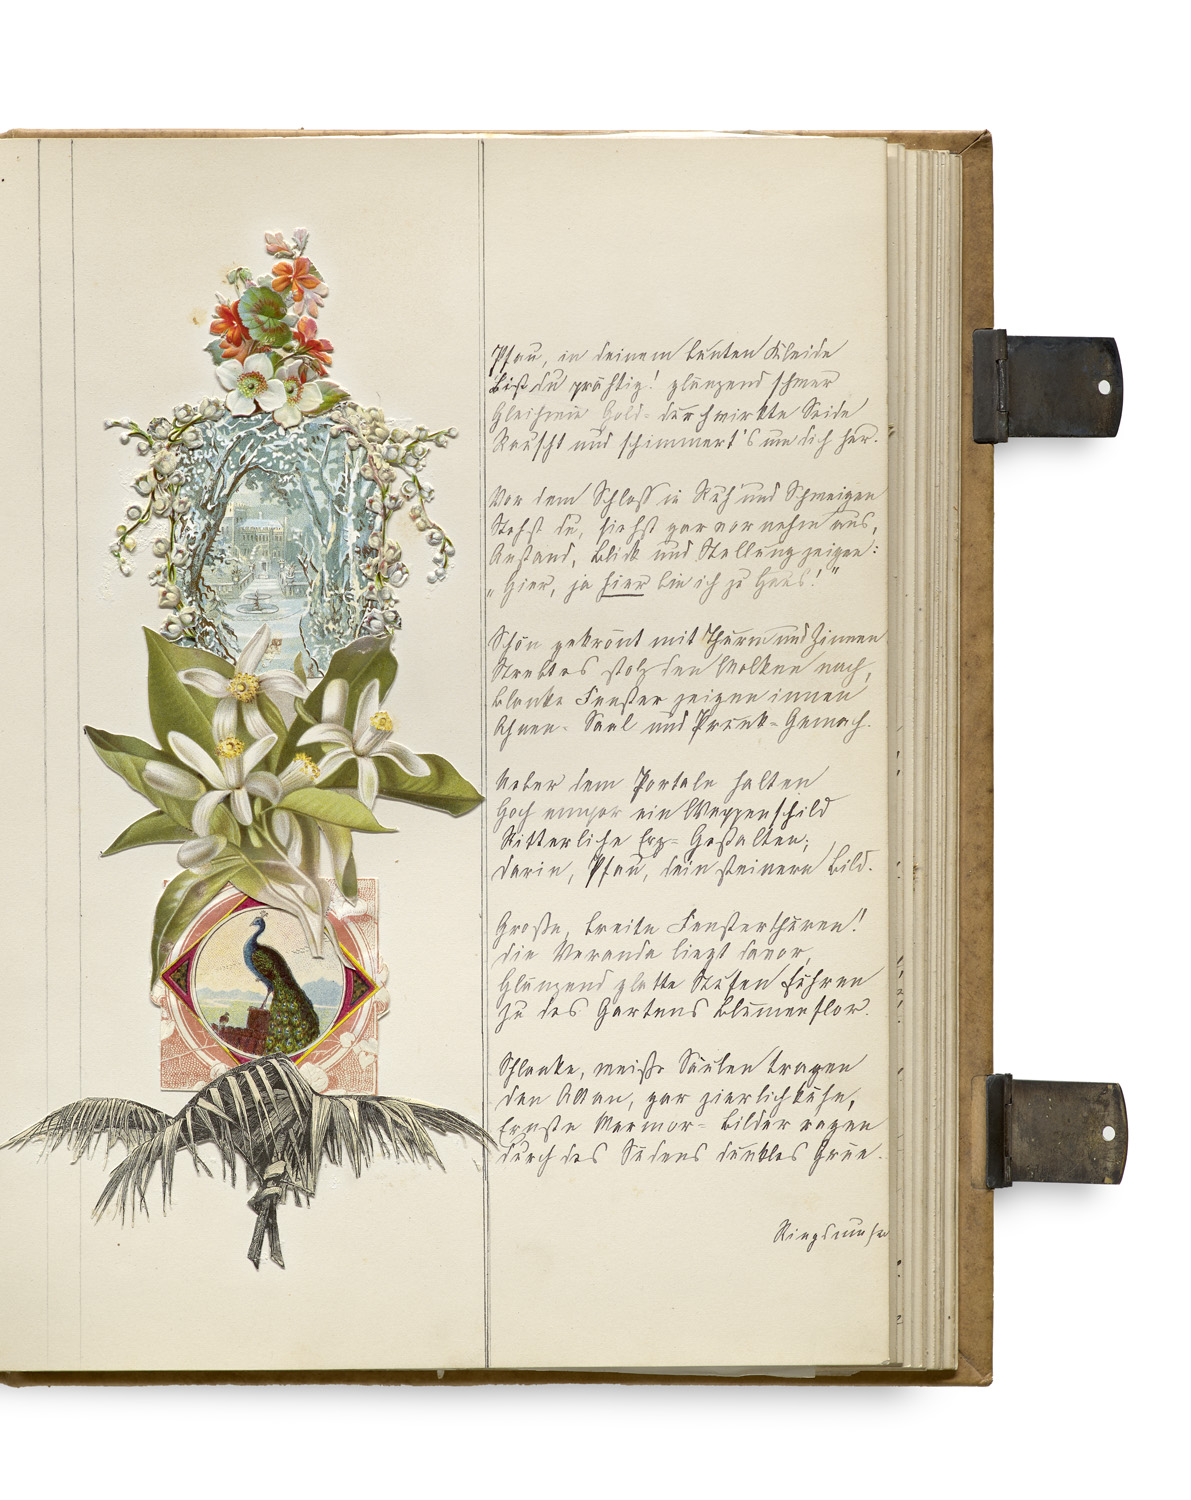 Pfau, in deinem bunten Kleide
Bist du prächtig! glänzend schwer
Gleichwie Gold-durchwirkte Seide
Rauscht und schimmert's um dich her.
Vor dem Schloss in Ruh' und Schweigen
Stehst du, siehst gar vornehm aus,
Anstand, Blick und Stellung zeigen:
„Hier, ja hier bin ich zu Haus!"
Schön gekrönt mit Thurm und Zinnen
Strebt es stolz den Wolken nach,
Blanke Fenster zeigen innen
Ahnen-Saal und Prunk-Gemach.
Ueber dem Portale halten
Hoch empor ein Wappenschild
Ritterliche Erz-Gestalten;
darin, Pfau, dein steinern Bild.
Große, breite Fensterthüren!
die Veranda liegt davor,
Glänzend glatte Stufen führen
zu des Gartens Blumenflor.
Schlanke, weiße Säulen tragen
den Altan, gar zierlich kühn,
Ernste Marmor-Bilder ragen
durch des Südens dunkles Grün.